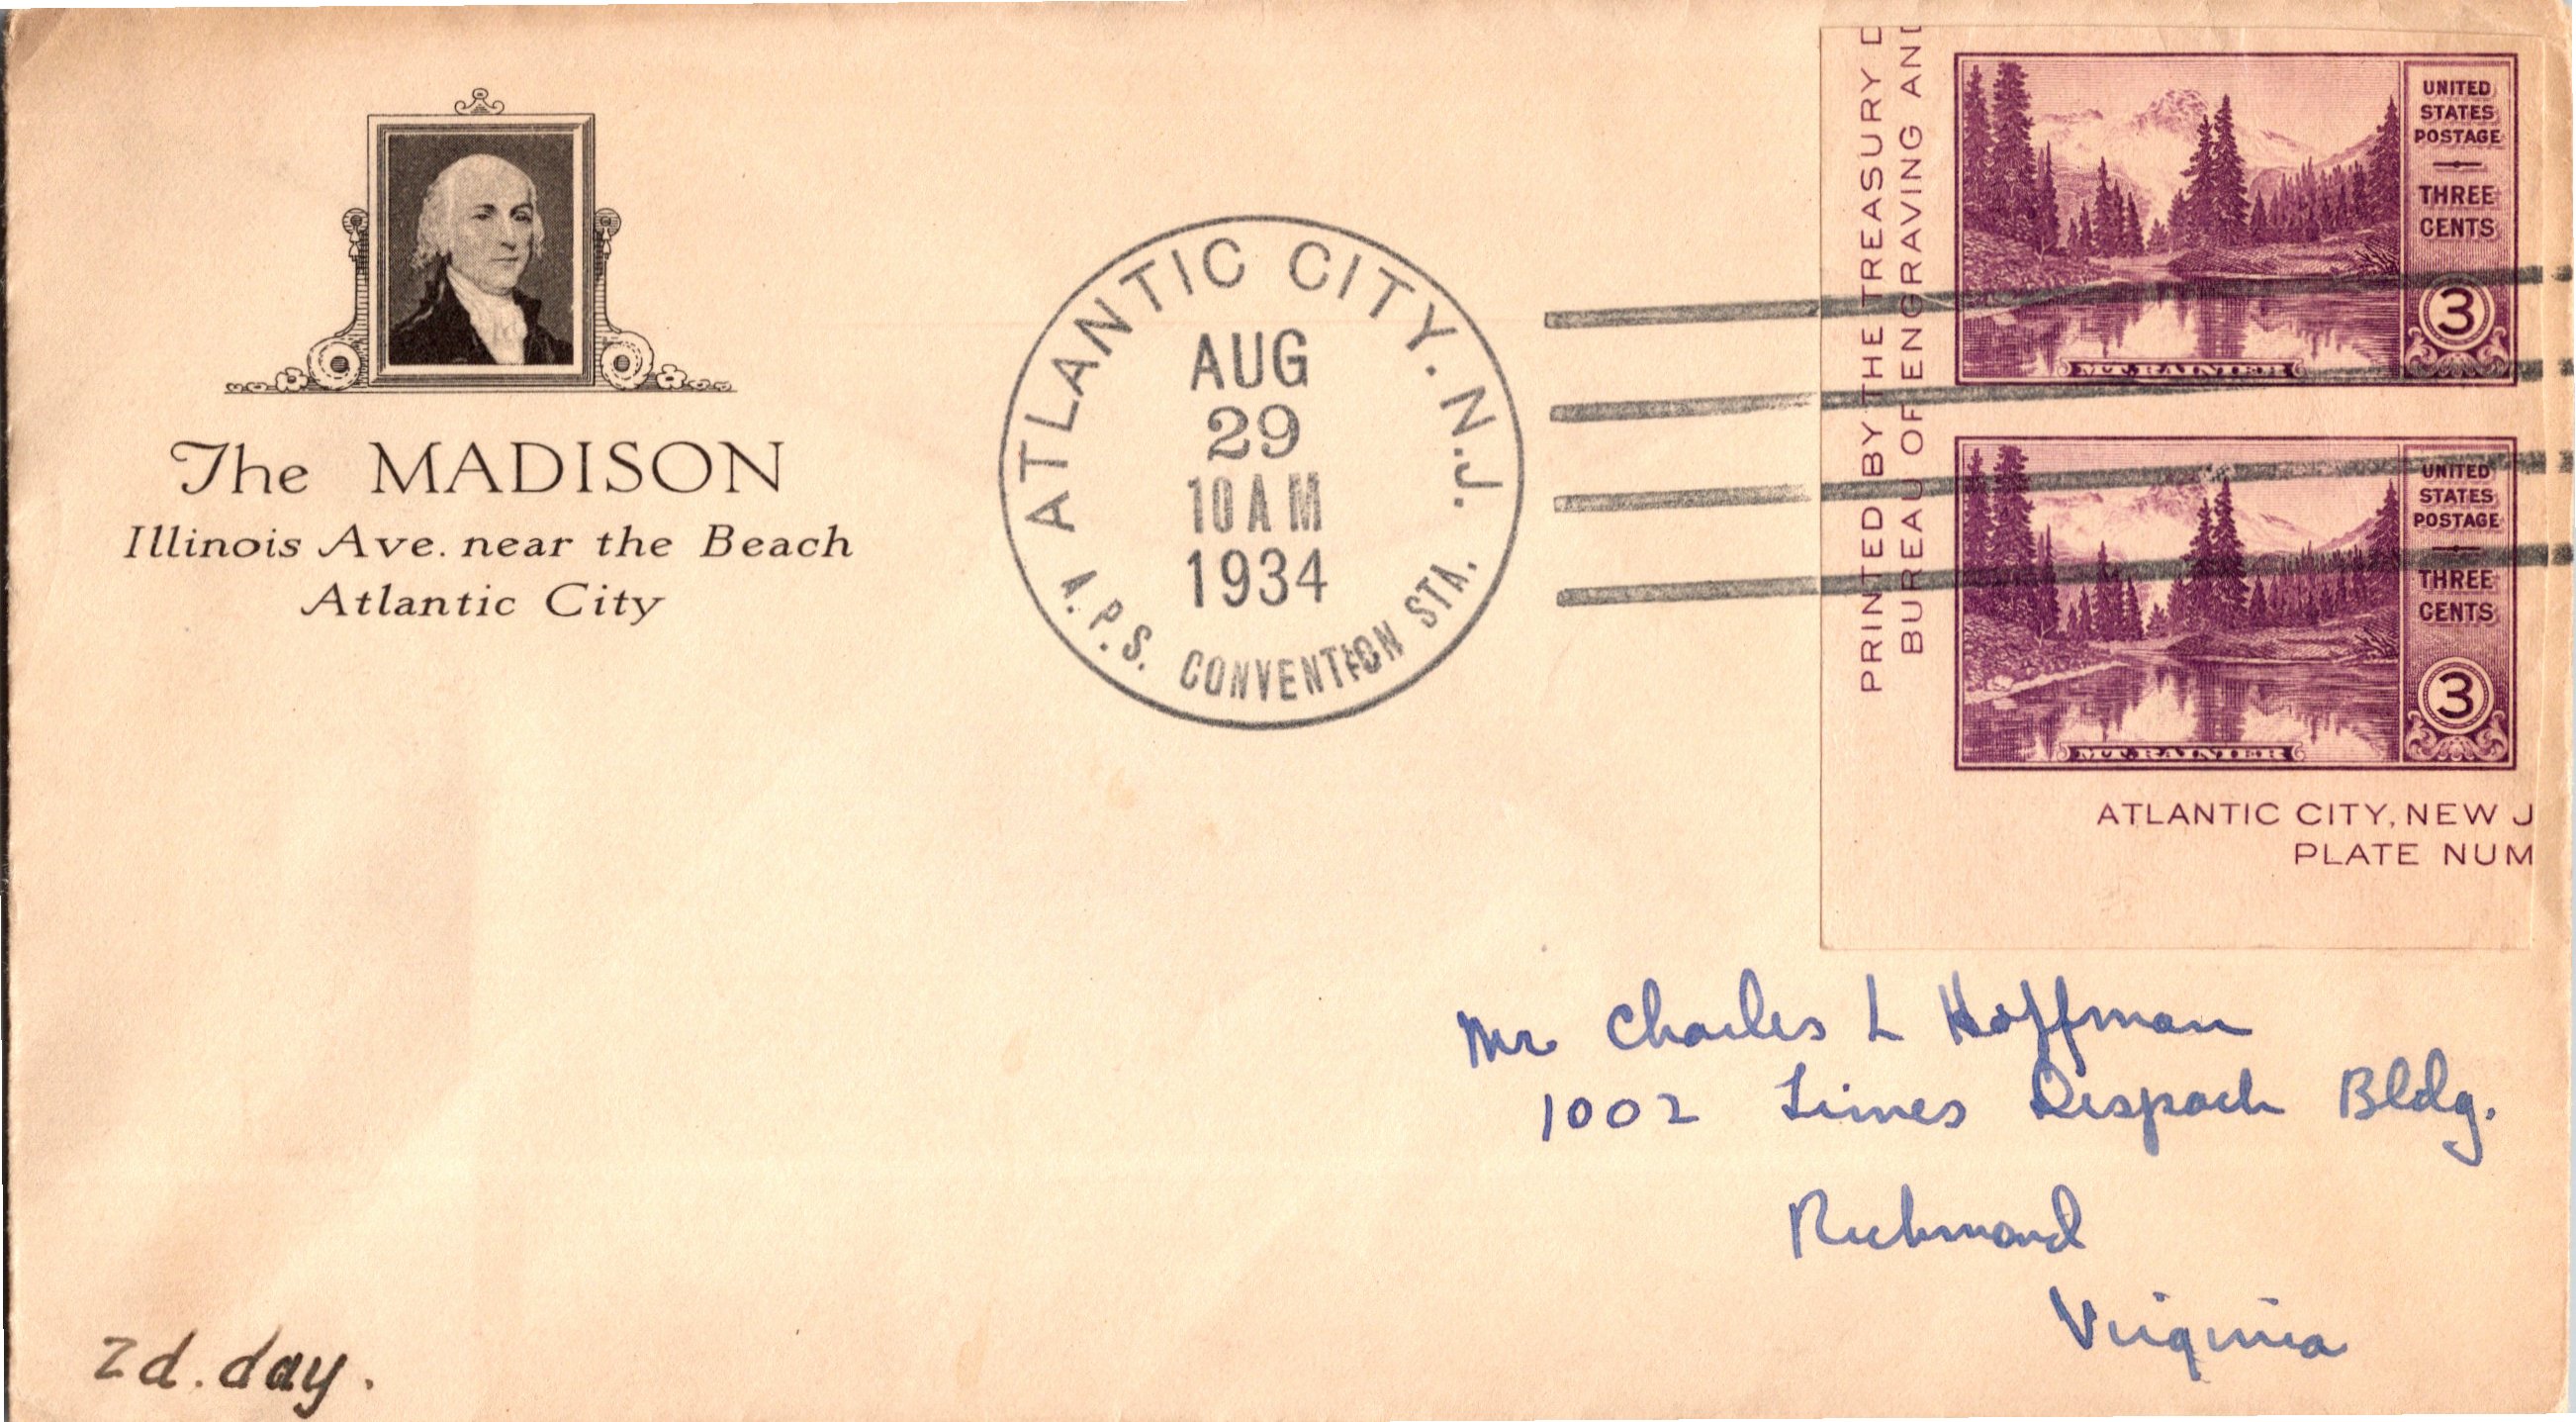 The MADISON
Illinois Ave. near the Beach
Atlantic City
ATLANTIC CITY. N.J.
AUG
29
10 AM
1934
A.P.S. CONVENTION STA.
PRINTED BY THE TREASURY D
BUREAU OF ENGRAVING AND
UNITED
STATES
POSTAGE
THREE
CENTS
3
MT. RAINIER
UNITED
STATES
POSTAGE
THREE
CENTS
3
MT. RAINIER
ATLANTIC CITY, NEW J
PLATE NUM
Mr Charles L Hoffman
1002 Times Dispach Bldg.
Richmond
Virginia
2d. day.